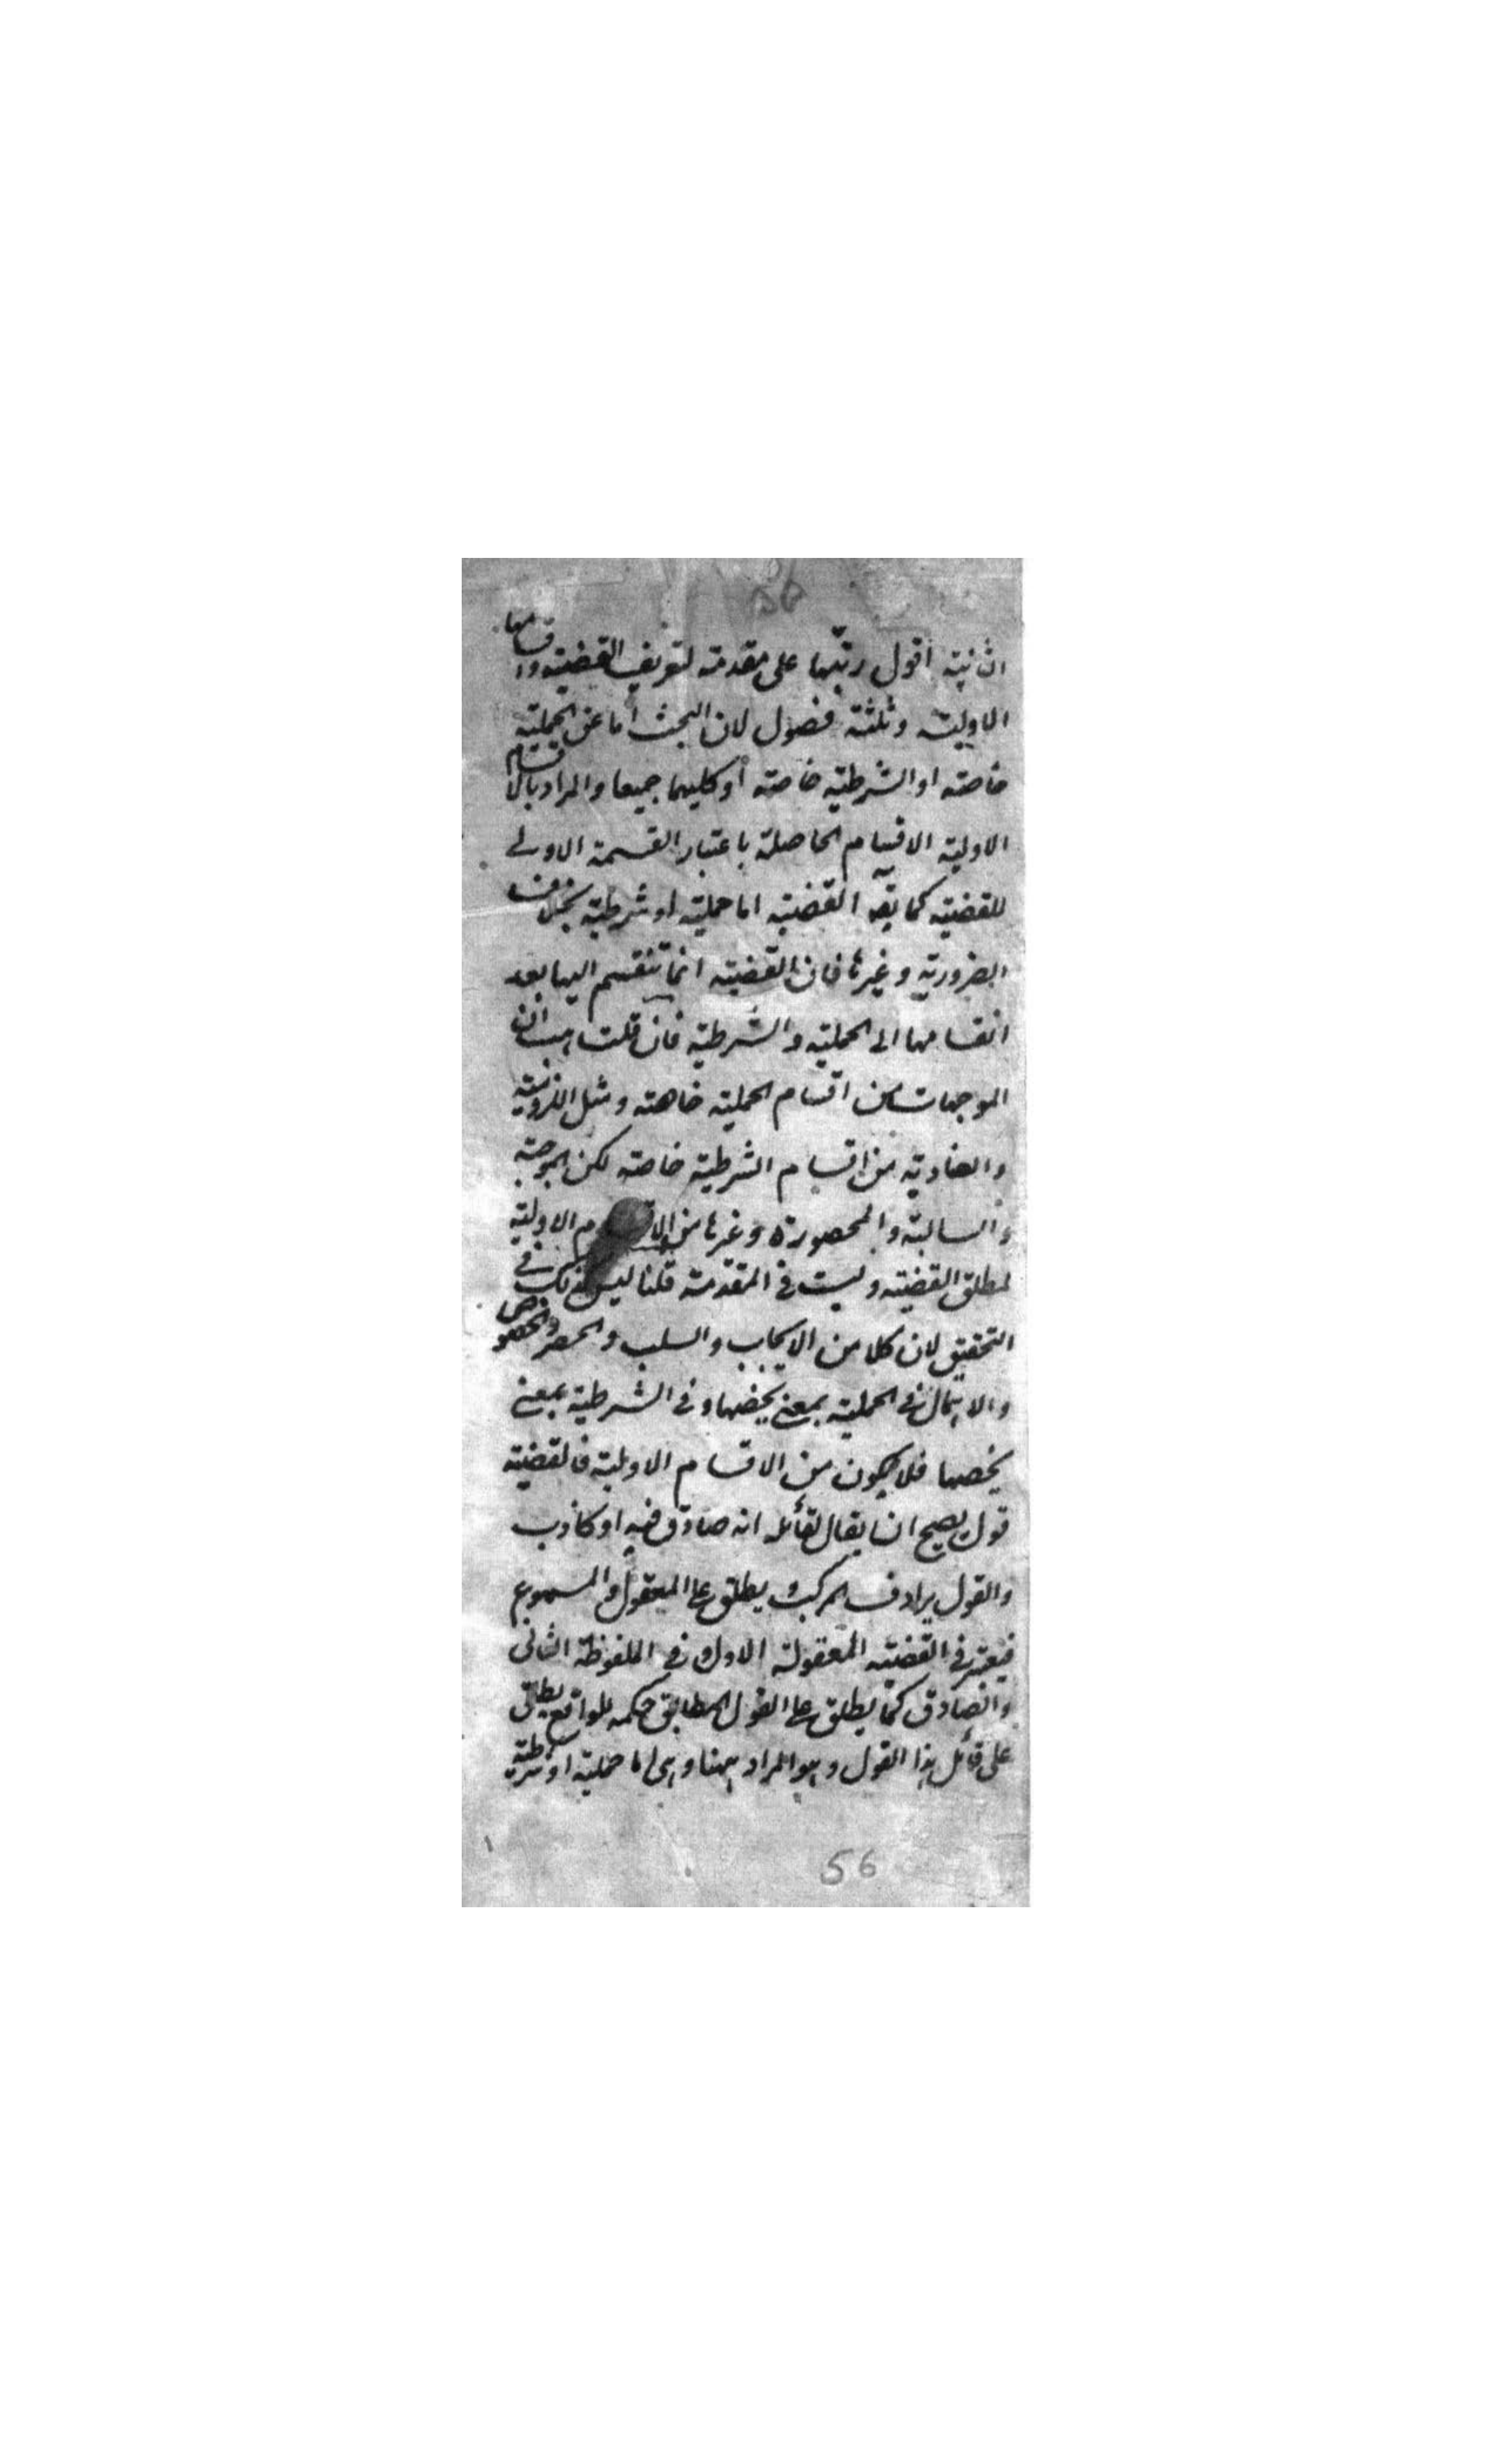 56
الثانية اقول رتبها على مقدمة لتعريف القضية واقسامها
الاولية وثلثة فصول لان البحث اما عن الحملية
خاصة او الشرطية خاصة أو كليهما جميعا والمراد بالاقسام
الاولية الاقسام الحاصلة باعتبار القسمة الاولى
للقضية كما يقہ القضية اما حملية او شرطية بخلاف
الضرورية وغيرها فان القضية انما تنقسم اليها بعد
انقسامها الى الحملية والشرطية فان قلت هب ان
الموجهات من اقسام الحملية خاصة ومثل اللزومية
والعنادية من اقسام الشرطية خاصة لكن الموجبة
والسالبة والمحصورة وغيرها من الاقسام الاولية
لمطلق القضية وليست في المقدمة قلنا ليس كذلك في
التحقيق لان كلا من الايجاب والسلب والحصر والخصوص
والاهمال في الحملية بمعنى يخصها وفي الشرطية بمعنى
يخصها فلا يكون من الاقسام الاولية فالقضية
قول يصح ان يقال لقائله انه صادق فيه او كاذب
والقول يرادف المركب ويطلق على المعقول والمسموع
فيعتبر في القضية المعقولة الاول وفي الملفوظة الثانى
والصادق كما يطلق على القول المطابق حكمه للواقع يطلق
على قائل هذا القول وهو المراد ههنا وهى اما حملية او شرطية
56